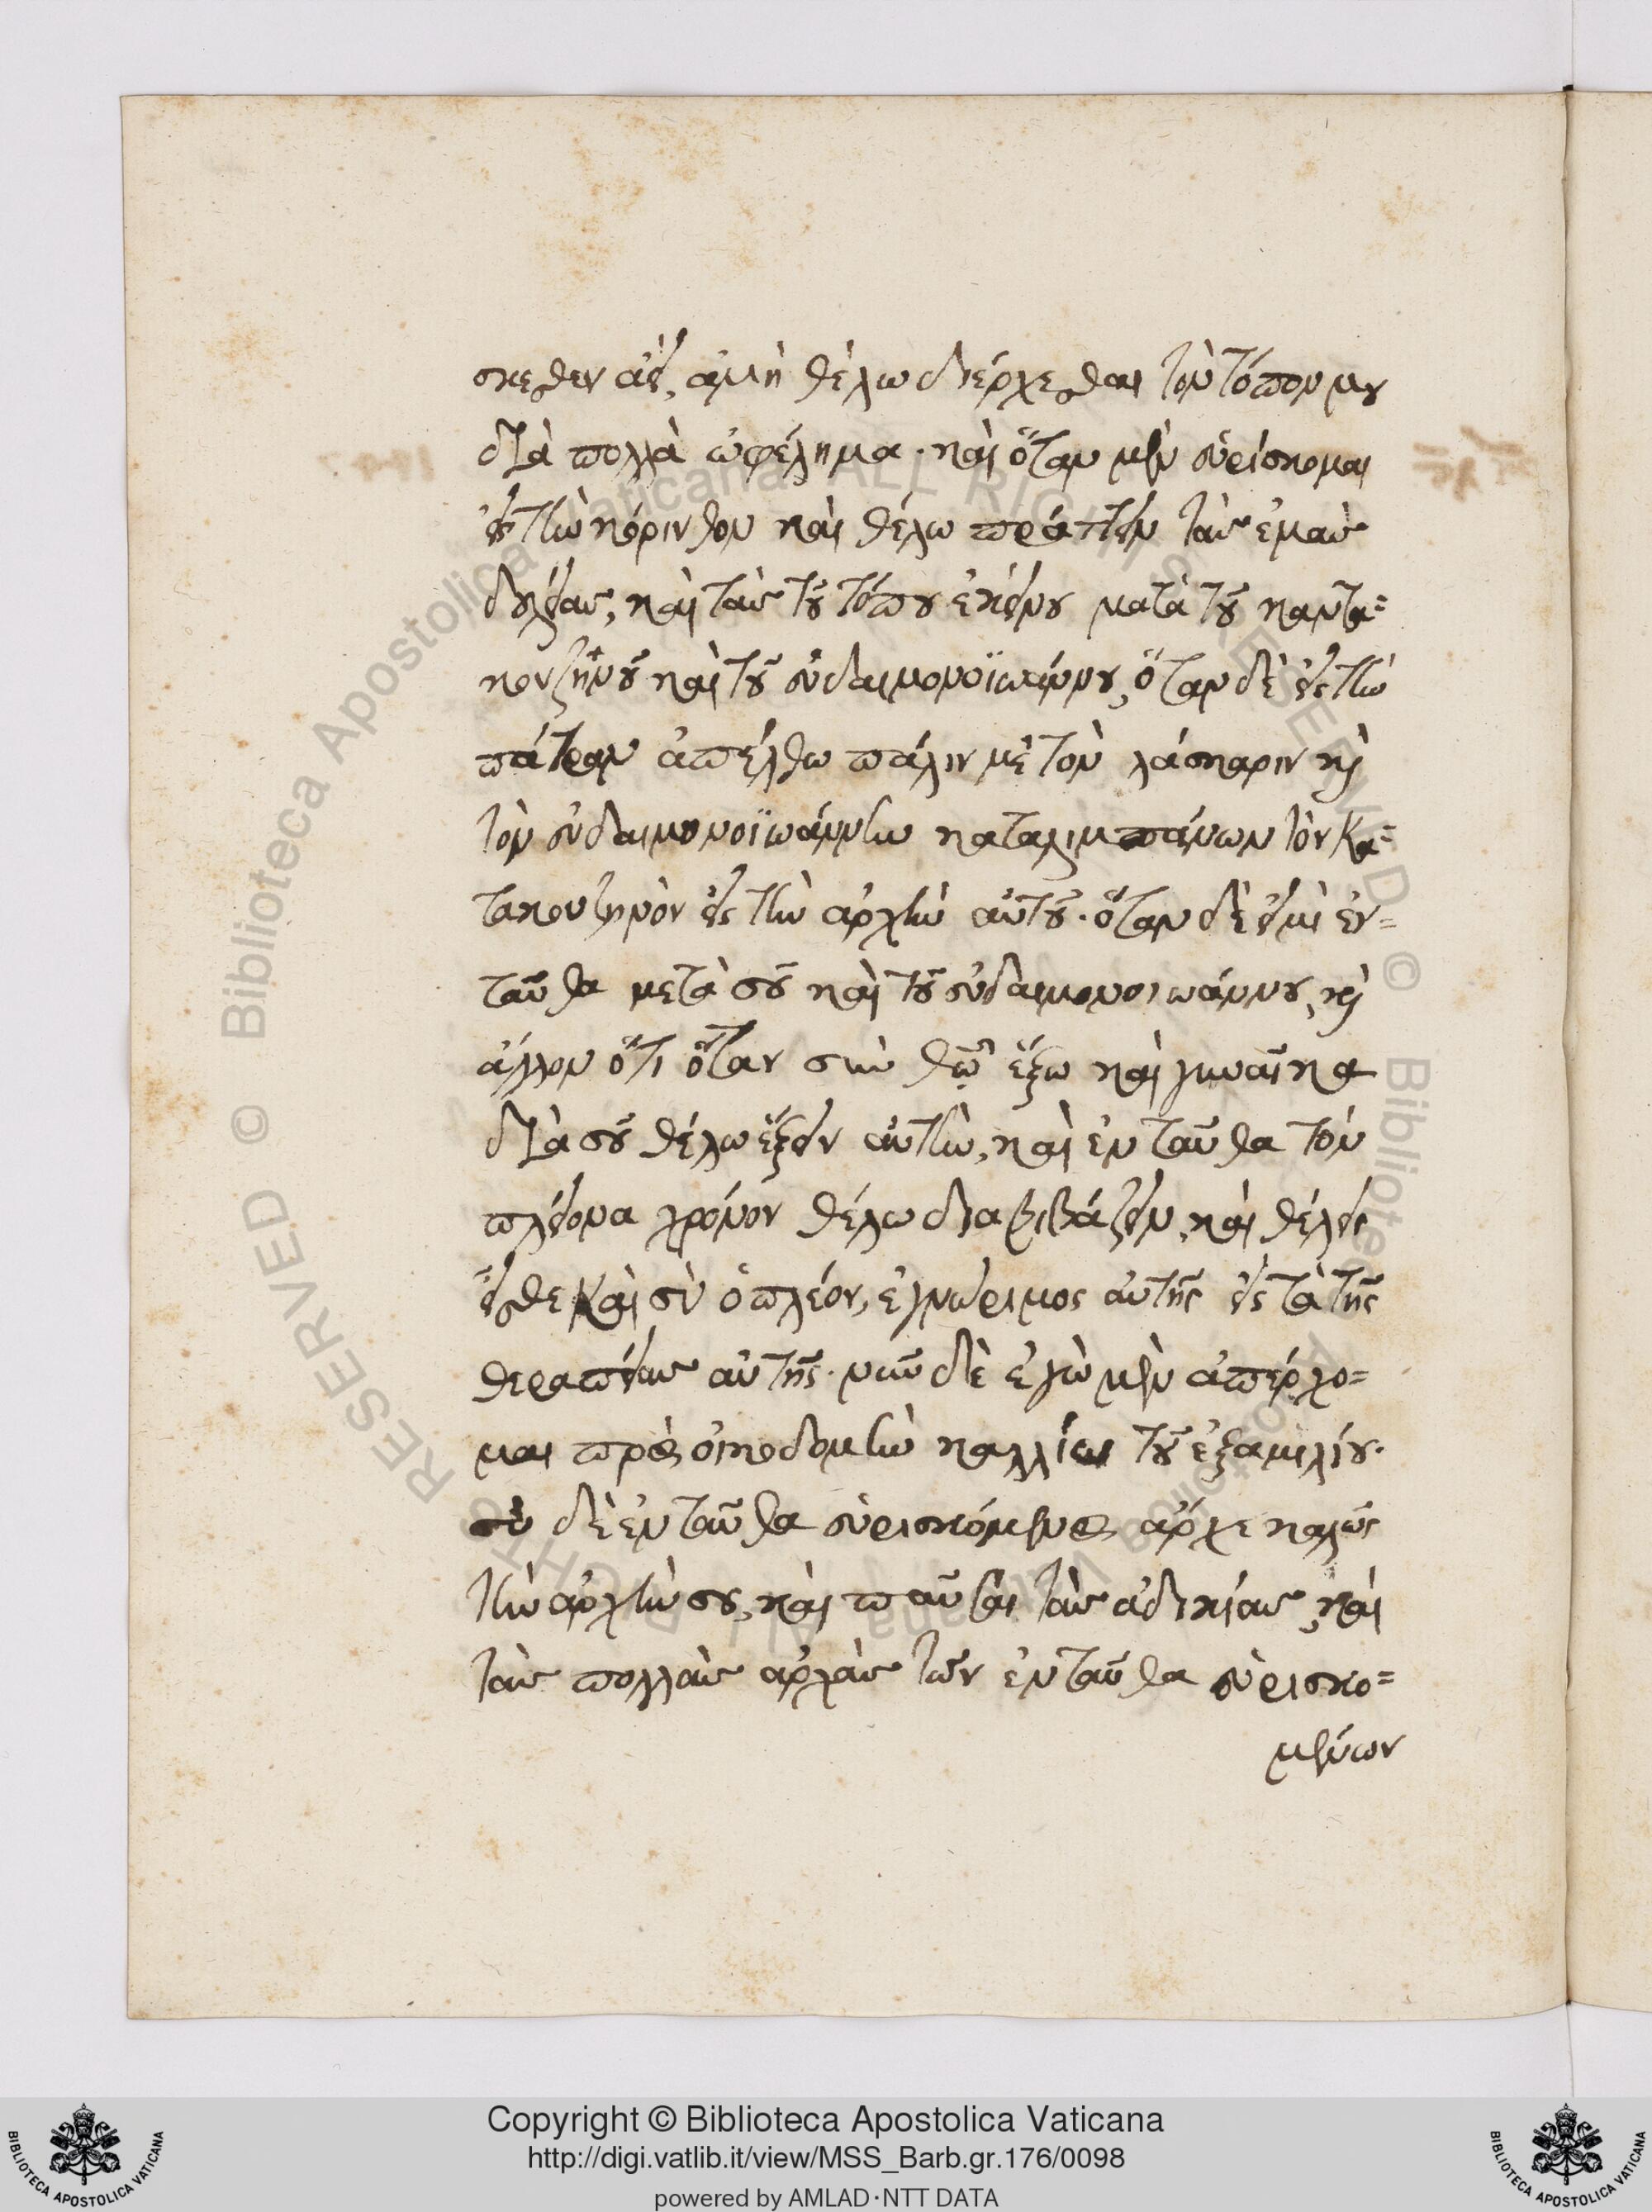 σκεσθεν ἀεί, ἀμὴ θέλω διέρχεσθαι τὸν τόπον μου
διὰ πολλὰ ὠφέλημα· καὶ ὅταν μὲν εὑρίσκομαι
εἰς τὴν κόρινθον καὶ θέλω πράττειν τὰς ἐμὰς
δουλείας, καὶ τὰς τοῦ τόπου ἐκείνου μετὰ τοῦ καντα=
κουζηνοῦ καὶ τοῦ εὐδαιμονοϊωάννου, ὅταν δὲ εἰς τὴν
πάτραν ἀπέλθω πάλιν μὲ τὸν λάσκαριν καὶ
τὸν εὐδαιμονοϊωάννην καταλιμπάνων τὸν Κα=
τακουζηνὸν εἰς τὴν ἀρχὴν αὐτοῦ· ὅταν δὲ εἰμὶ ἐν=
ταῦθα μετὰ σοῦ καὶ τοῦ εὐδαιμονοιωάννου, καὶ
ἄλλον ὅτι ὅταν σὺν θεῷ ἔξω καὶ γυναῖκα
διὰ σοῦ θέλω ἔξειν αὐτὴν, καὶ ἐνταῦθα τὸν
πλείονα χρόνον θέλω διαβιβάζειν, καὶ θέλεις
εἶσθε καὶ σὺ ὁ πλέον, ἐγνώριμος αὐτῆς εἰς τὰ τῆς
θεραπείας αὐτῆς· νῦν δὲ ἐγὼ μὲν ἀπέρχο=
μαι πρὸς οἰκοδομὴν καλλίω τοῦ ἐξαμιλίου·
σὺ δὲ ἐνταῦθα εὑρισκόμενος ἄρχε καλῶς
τὴν ἀρχήν σου, καὶ παῦσαι τὰς ἀδικίας, καὶ
τὰς πολλὰς ἀρχὰς τῶν ἐνταῦθα εὑρισκο=
μένων
Copyright © Biblioteca Apostolica Vaticana
http://digi.vatlib.it/view/MSS_Barb.gr.176/0098
powered by AMLAD·NTT DATA